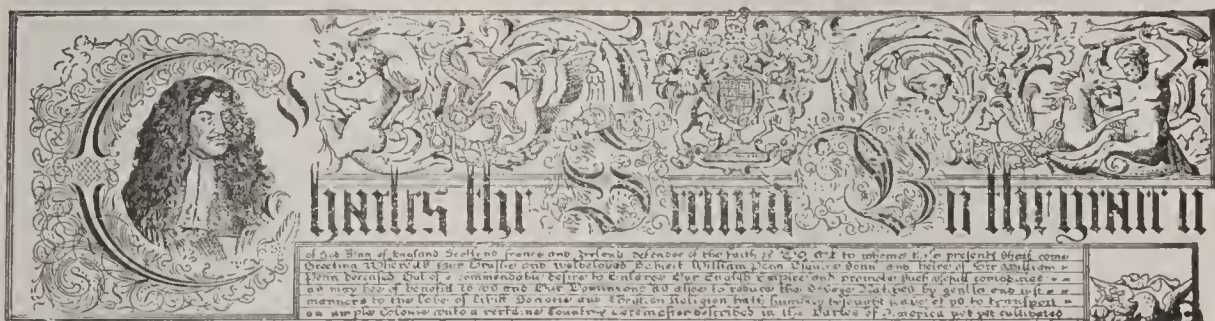 Charles the Second By the grace o
of God King of England Scotland france and Ireland Defender of the faith &c TO ALL to whome these presents shall come
Greeting Whereas Our Trustie and welbeloved Subject William Penn Esquire Sonn and heire of Sir William
Penn deceased Out of a commendable desire to Enlarge Our English Empire and promote such usefull comodities
as may bee of benefitt to us and Our Dominions as alsoe to reduce the Savage Natives by gentle and just
manners to the Love of Civill Societie and Christian Religion hath humbly besought Leave of us to transport
an ample Colonie unto a certaine Countrey hereinafter described in the Partes of America not yet cultivated